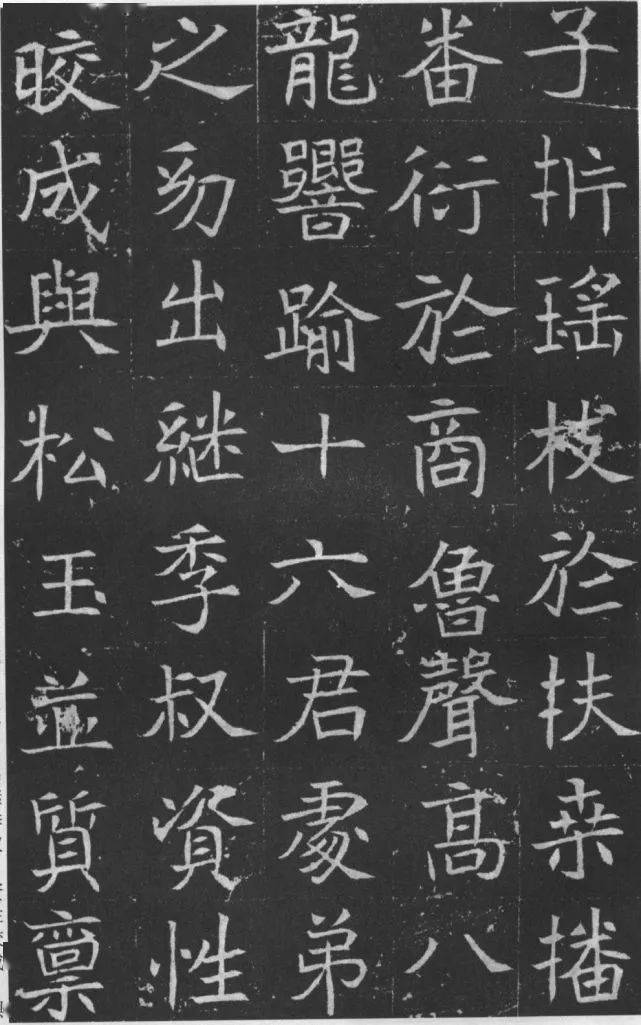 子析瑤枝於扶桒播
番衍於商魯聲髙八
龍響踰十六君處弟
之幼出継季叔資性
晈成與松玉並質稟